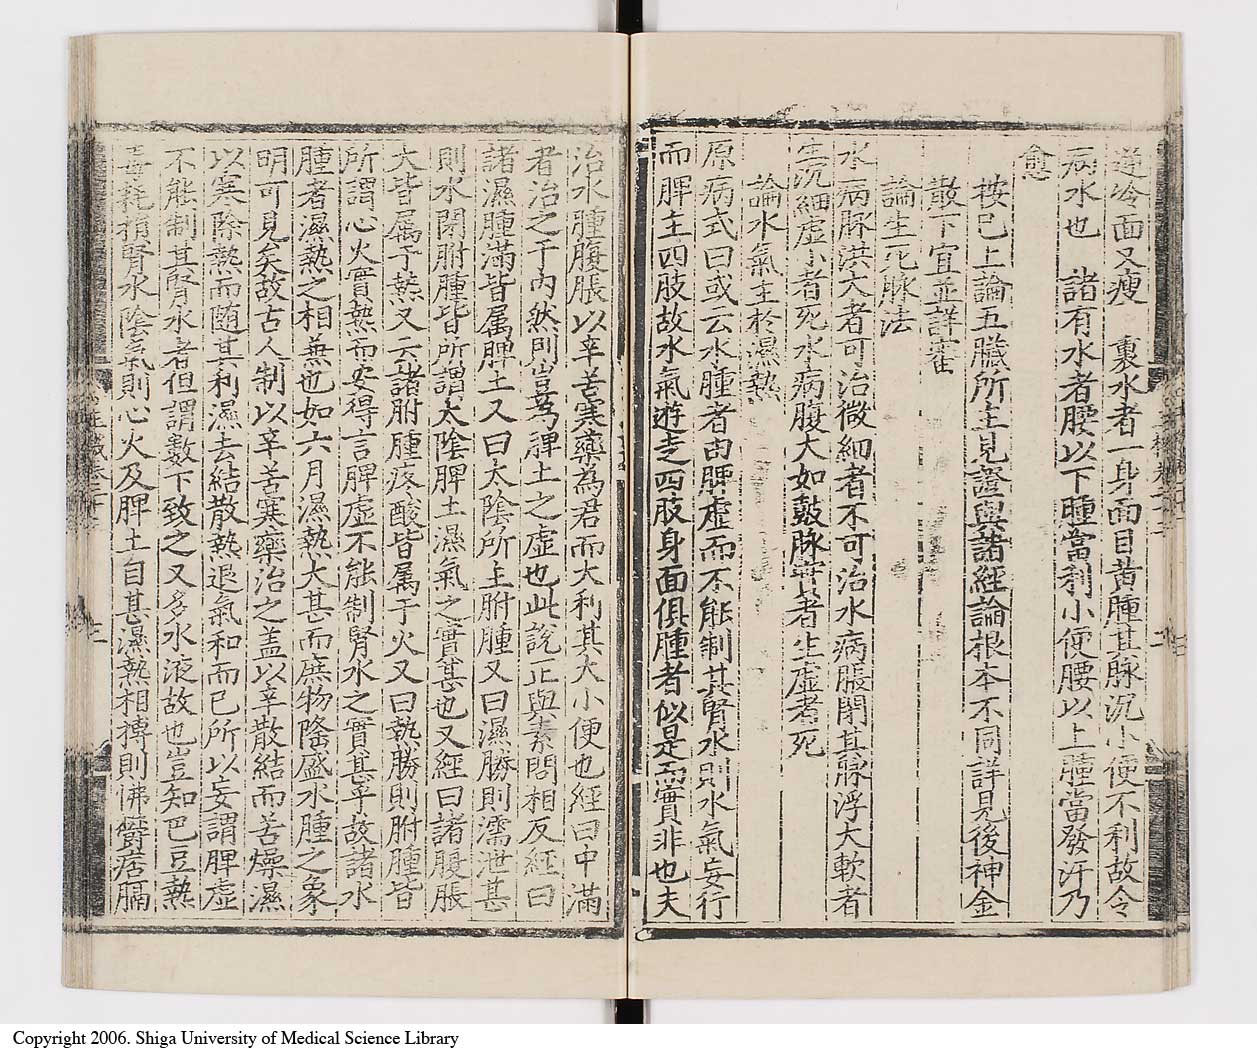 逆冷面又瘦　裏水者一身面目黄腫其脉沉小便不利故令
病水也　諸有水者腰以下腫當利小便腰以上腫當發汗乃
愈
按已上論五臟所主見證與諸經論根本不同詳見後神金
散下宜並詳審
論生死脉法
水病脉洪大者可治微細者不可治水病脹閉其脉浮大軟者
生沉細虚小者死水病腹大如皷脉實者生虚者死
論水氣主於濕熱
原病式曰或云水腫者由脾虚而不能制其腎水則水氣妄行
而脾主四肢故水氣遊走四肢身面俱腫者似是而實非也夫
治水腫腹脹以辛苦寒藥為君而大利其大小便也經曰中滿
者治之于内然則豈為脾土之虚也此説正與素問相反經曰
諸濕腫滿皆属脾土又曰太陰所主胕腫又曰濕勝則濡泄甚
則水閉胕腫皆所謂太陰脾土濕氣之實甚也又經曰諸腹脹
大皆属于熱又云諸胕腫疼酸皆属于火又曰熱勝則胕腫皆
所謂心火實熱而安得言脾虚不能制腎水之實甚乎故諸水
腫者濕熱之相兼也如六月濕熱大甚而庶物隆盛水腫之象
明可見矣故古人制以辛苦寒藥治之盖以辛散結而苦燥濕
以寒除熱而随其利濕去結散熱退氣和而已所以妄謂脾虚
不能制其腎水者但謂數下致之又多水液故也豈知巴豆熱
毒耗損腎水陰氣則心火及脾土自甚濕熱相摶則怫欝痞膈
Copyright 2006. Shiga University of Medical Science Library